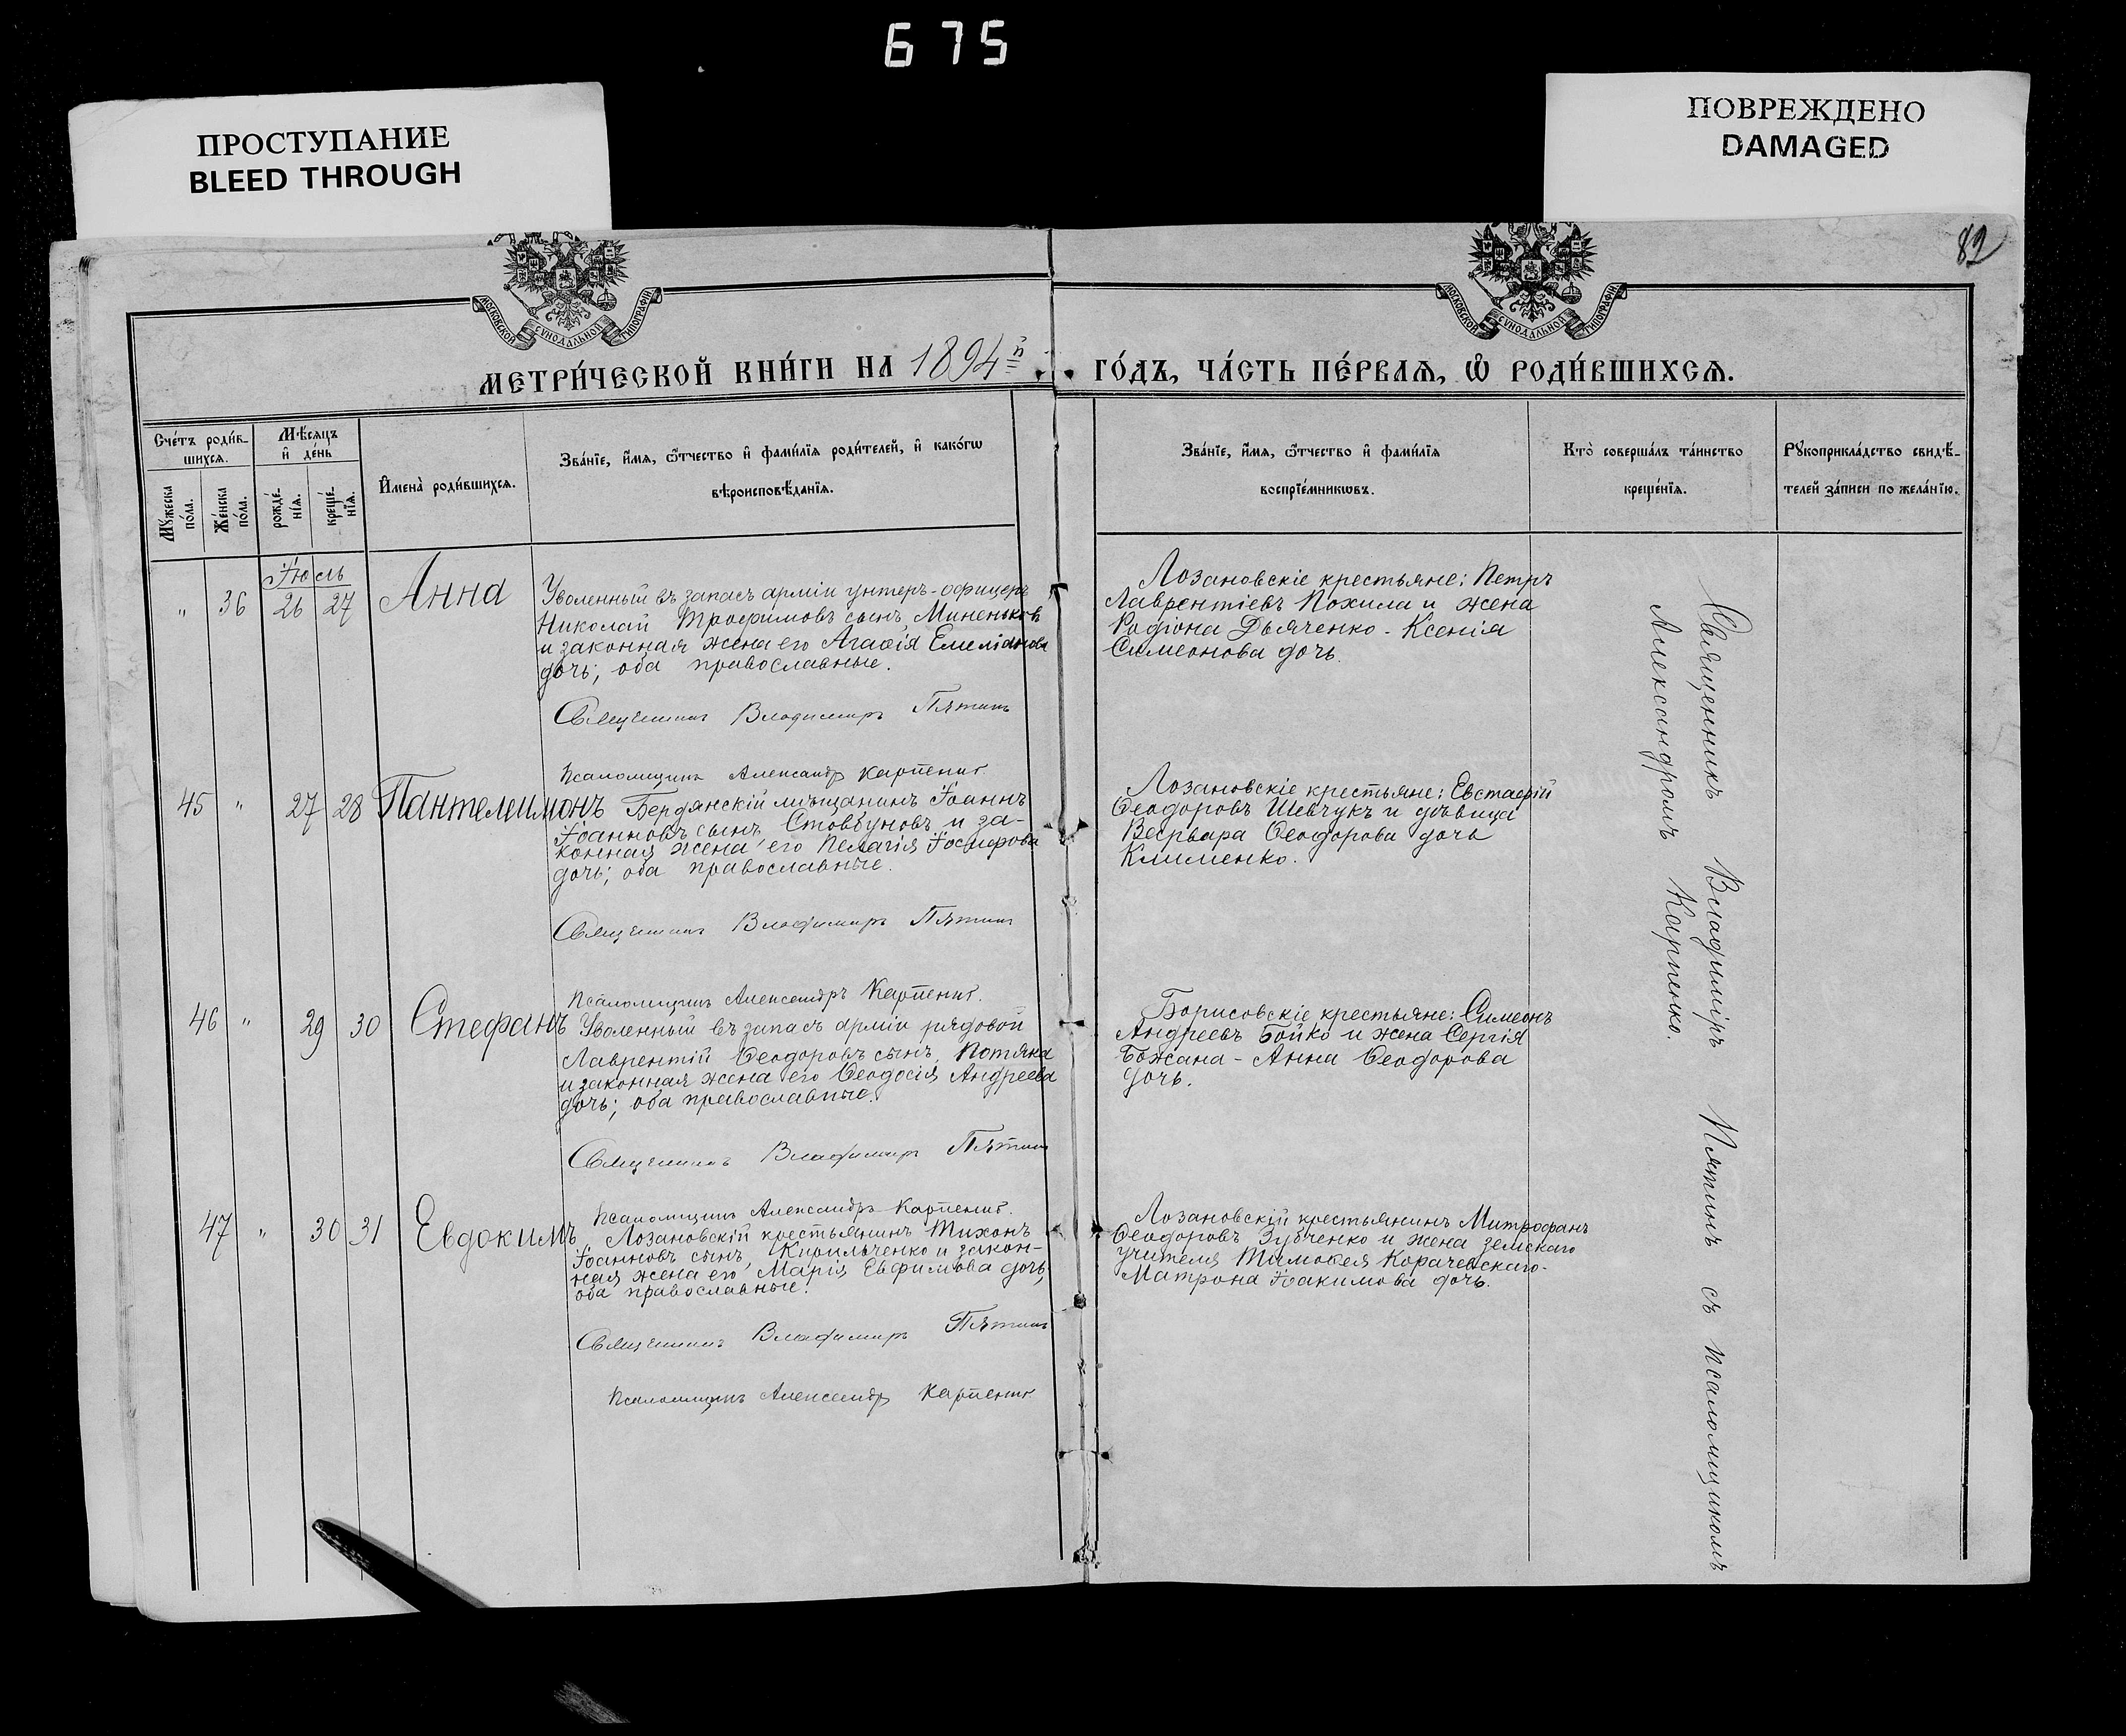 675
ПРОСТУПАНИЕ
BLEED THROUGH
ПОВРЕЖДЕНО
DAMAGED
82
МОСКОВСКОЙ СѴНОДАЛЬНОЙ ТИПОГРАФІИ
МОСКОВСКОЙ СѴНОДАЛЬНОЙ ТИПОГРАФІИ
МЕТРИ́ЧЕСКОЙ КНИ́ГИ НА 1894й ГО́ДЪ, ЧА́СТЬ ПЕ́РВАѦ, Ѡ҆ РОДИ́ВШИХСѦ.
Сче́тъ роди́в-
шихсѧ.
Мꙋ́жеска по́ла.
Же́нска по́ла.
Мѣ́сѧцъ
и҆ де́нь
рожде́-нїѧ.
креще́-нїѧ.
И҆мена̀ роди́вшихсѧ.
Зва́нїе, и҆́мѧ, ѻ҆́тчество и҆ фами́лїѧ роди́телей, и҆ како́гѡ
вѣроисповѣ́данїѧ.
Зва́нїе, и҆́мѧ, ѻ҆́тчество и҆ фами́лїѧ
воспрїе́мникѡвъ.
Кто̀ соверша́лъ та́инство
креще́нїѧ.
Рꙋкоприкла́дство свидѣ́-
телей за́писи по жела́нїю.
Іюль
" 36 26 27 Анна
Уволенный въ запасъ арміи унтеръ-офицеръ
Николай Трофимовъ сынъ, Миненьковъ
и законная жена его Агаѳія Емеліанова
дочь; оба православные.
Священникъ Владимиръ Пятинъ
Псаломщикъ Александръ Карпенко
Лозановскіе крестьяне: Петръ
Лаврентіевъ Похила и жена
Родіона Дьяченко - Ксенія
Симеонова дочь.
45 " 27 28 Пантелеимонъ
Бердянскій мѣщанинъ Іоаннъ
Іоанновъ сынъ, Стовбуновъ и за-
конная жена его Пелагія Іосифова
дочь; оба православные.
Священникъ Владимиръ Пятинъ
Псаломщикъ Александръ Карпенко.
Лозановскіе крестьяне: Евстаѳій
Ѳеодоровъ Шевчукъ и дѣвица
Варвара Ѳеодорова дочь
Клименко.
46 " 29 30 Стефанъ
Уволенный въ запасъ арміи рядовой
Лаврентій Ѳеодоровъ сынъ, Потяка
и законная жена его Ѳеодосія Андреева
дочь; оба православные.
Священникъ Владимиръ Пятинъ
Псаломщикъ Александръ Карпенко.
Борисовскіе крестьяне: Симеонъ
Андреевъ Бойко и жена Сергія
Божана - Анна Ѳеодорова
дочь.
47 " 30 31 Евдокимъ
Лозановскій крестьянинъ Тихонъ
Іоанновъ сынъ, Кирильченко и закон-
ная жена его Марія Евфимова дочь;
оба православные.
Священникъ Владимиръ Пятинъ
Псаломщикъ Александръ Карпенко
Лозановскій крестьянинъ Митрофанъ
Ѳеодоровъ Зубченко и жена земскаго
учителя Тимоѳея
Матрона Іоакимова дочь.
Священникъ Владиміръ Пятинъ съ псаломщикомъ
Александромъ Карпенко.